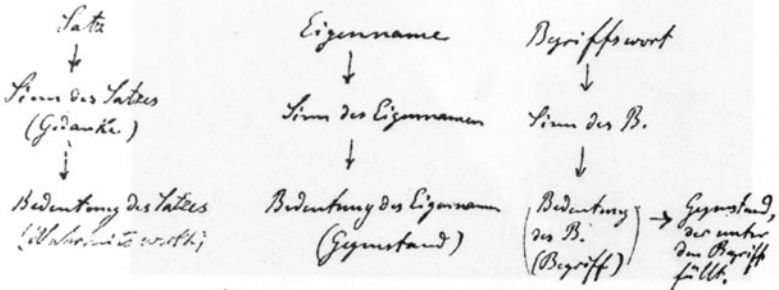 Satz
↓
Sinn des Satzes
(Gedanke)
↓
Bedeutung des Satzes
(Wahrheitswerth)
Eigenname
↓
Sinn des Eigennamens
↓
Bedeutung des Eigennamens
(Gegenstand)
Begriffswort
↓
Sinn des B.
↓
(Bedeutung
des B.
(Begriff))
→ Gegenstand,
der unter
den Begriff
fällt.